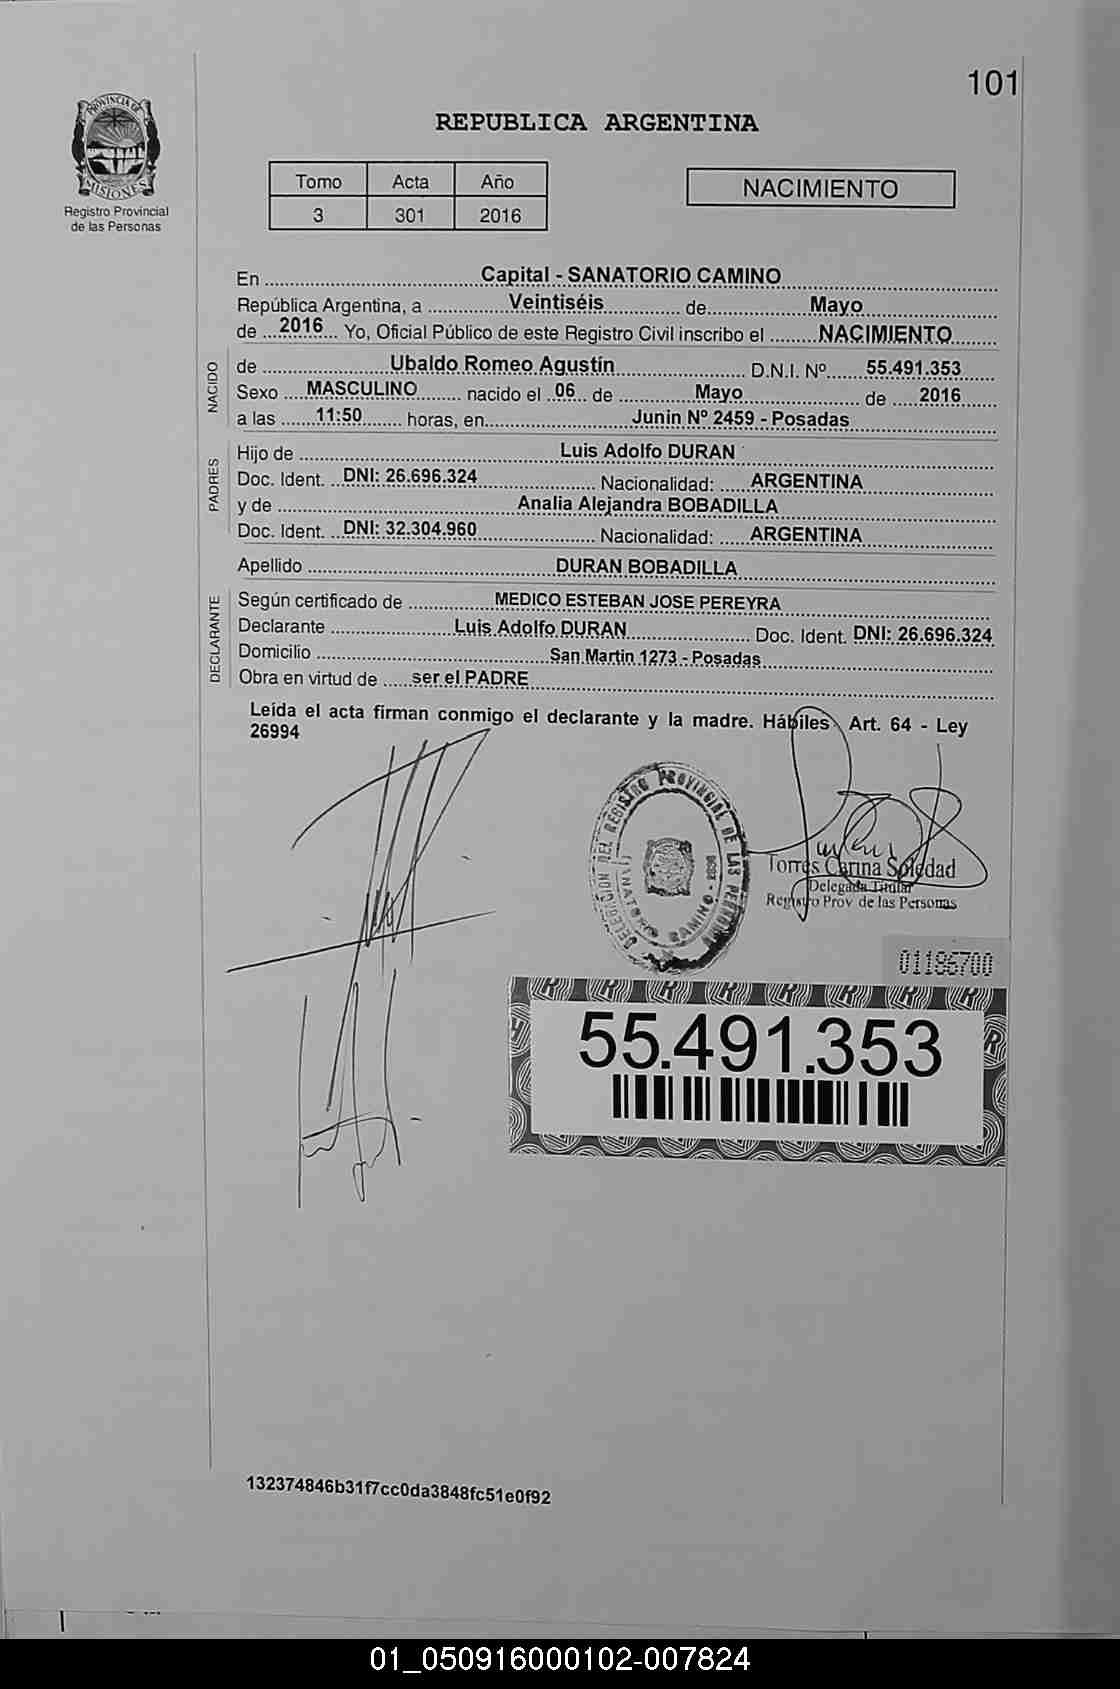 101
PROVINCIA DE
MISIONES
Registro Provincial
de las Personas
REPUBLICA ARGENTINA
Tomo Acta Año
3 301 2016
NACIMIENTO
En Capital - SANATORIO CAMINO
República Argentina, a Veintiséis de Mayo
de 2016 Yo, Oficial Público de este Registro Civil inscribo el NACIMIENTO
NACIDO
de Ubaldo Romeo Agustín D.N.I. Nº 55.491.353
Sexo MASCULINO nacido el 06 de Mayo de 2016
a las 11:50 horas, en Junin Nº 2459 - Posadas
PADRES
Hijo de Luis Adolfo DURAN
Doc. Ident. DNI: 26.696.324 Nacionalidad: ARGENTINA
y de Analia Alejandra BOBADILLA
Doc. Ident. DNI: 32.304.960 Nacionalidad: ARGENTINA
Apellido DURAN BOBADILLA
DECLARANTE
Según certificado de MEDICO ESTEBAN JOSE PEREYRA
Declarante Luis Adolfo DURAN Doc. Ident. DNI: 26.696.324
Domicilio San Martin 1273 - Posadas
Obra en virtud de ser el PADRE
Leída el acta firman conmigo el declarante y la madre. Hábiles Art. 64 - Ley
26994
DELEGACION DEL REGISTRO PROVINCIAL DE LAS PERSONAS
CAMINO
Torres Carina Soledad
Delegada Titular
Registro Prov de las Personas
01186700
55.491.353
132374846b31f7cc0da3848fc51e0f92
01_050916000102-007824